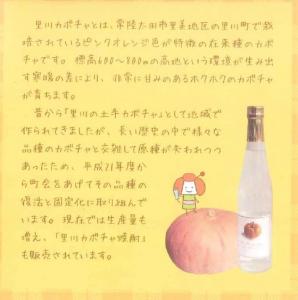 里川カボチャとは、常陸太田市里美地区の里川町で栽
培されているピンクオレンジ色が特徴の在来種のカボ
チャです。標高600〜800mの高地という環境が生み出
す寒暖の差により、非常に甘みのあるホクホクのカボチャ
が育ちます。
昔から「里川の土手カボチャ」として地域で
作られてきましたが、長い歴史の中で様々な
品種のカボチャと交雑して原種が失われつつ
あったため、平成21年度か
ら町会をあげてその品種の
復活と固定化に取り組んで
います。現在では生産量も
増え、「里川カボチャ焼酎」
も販売されています。